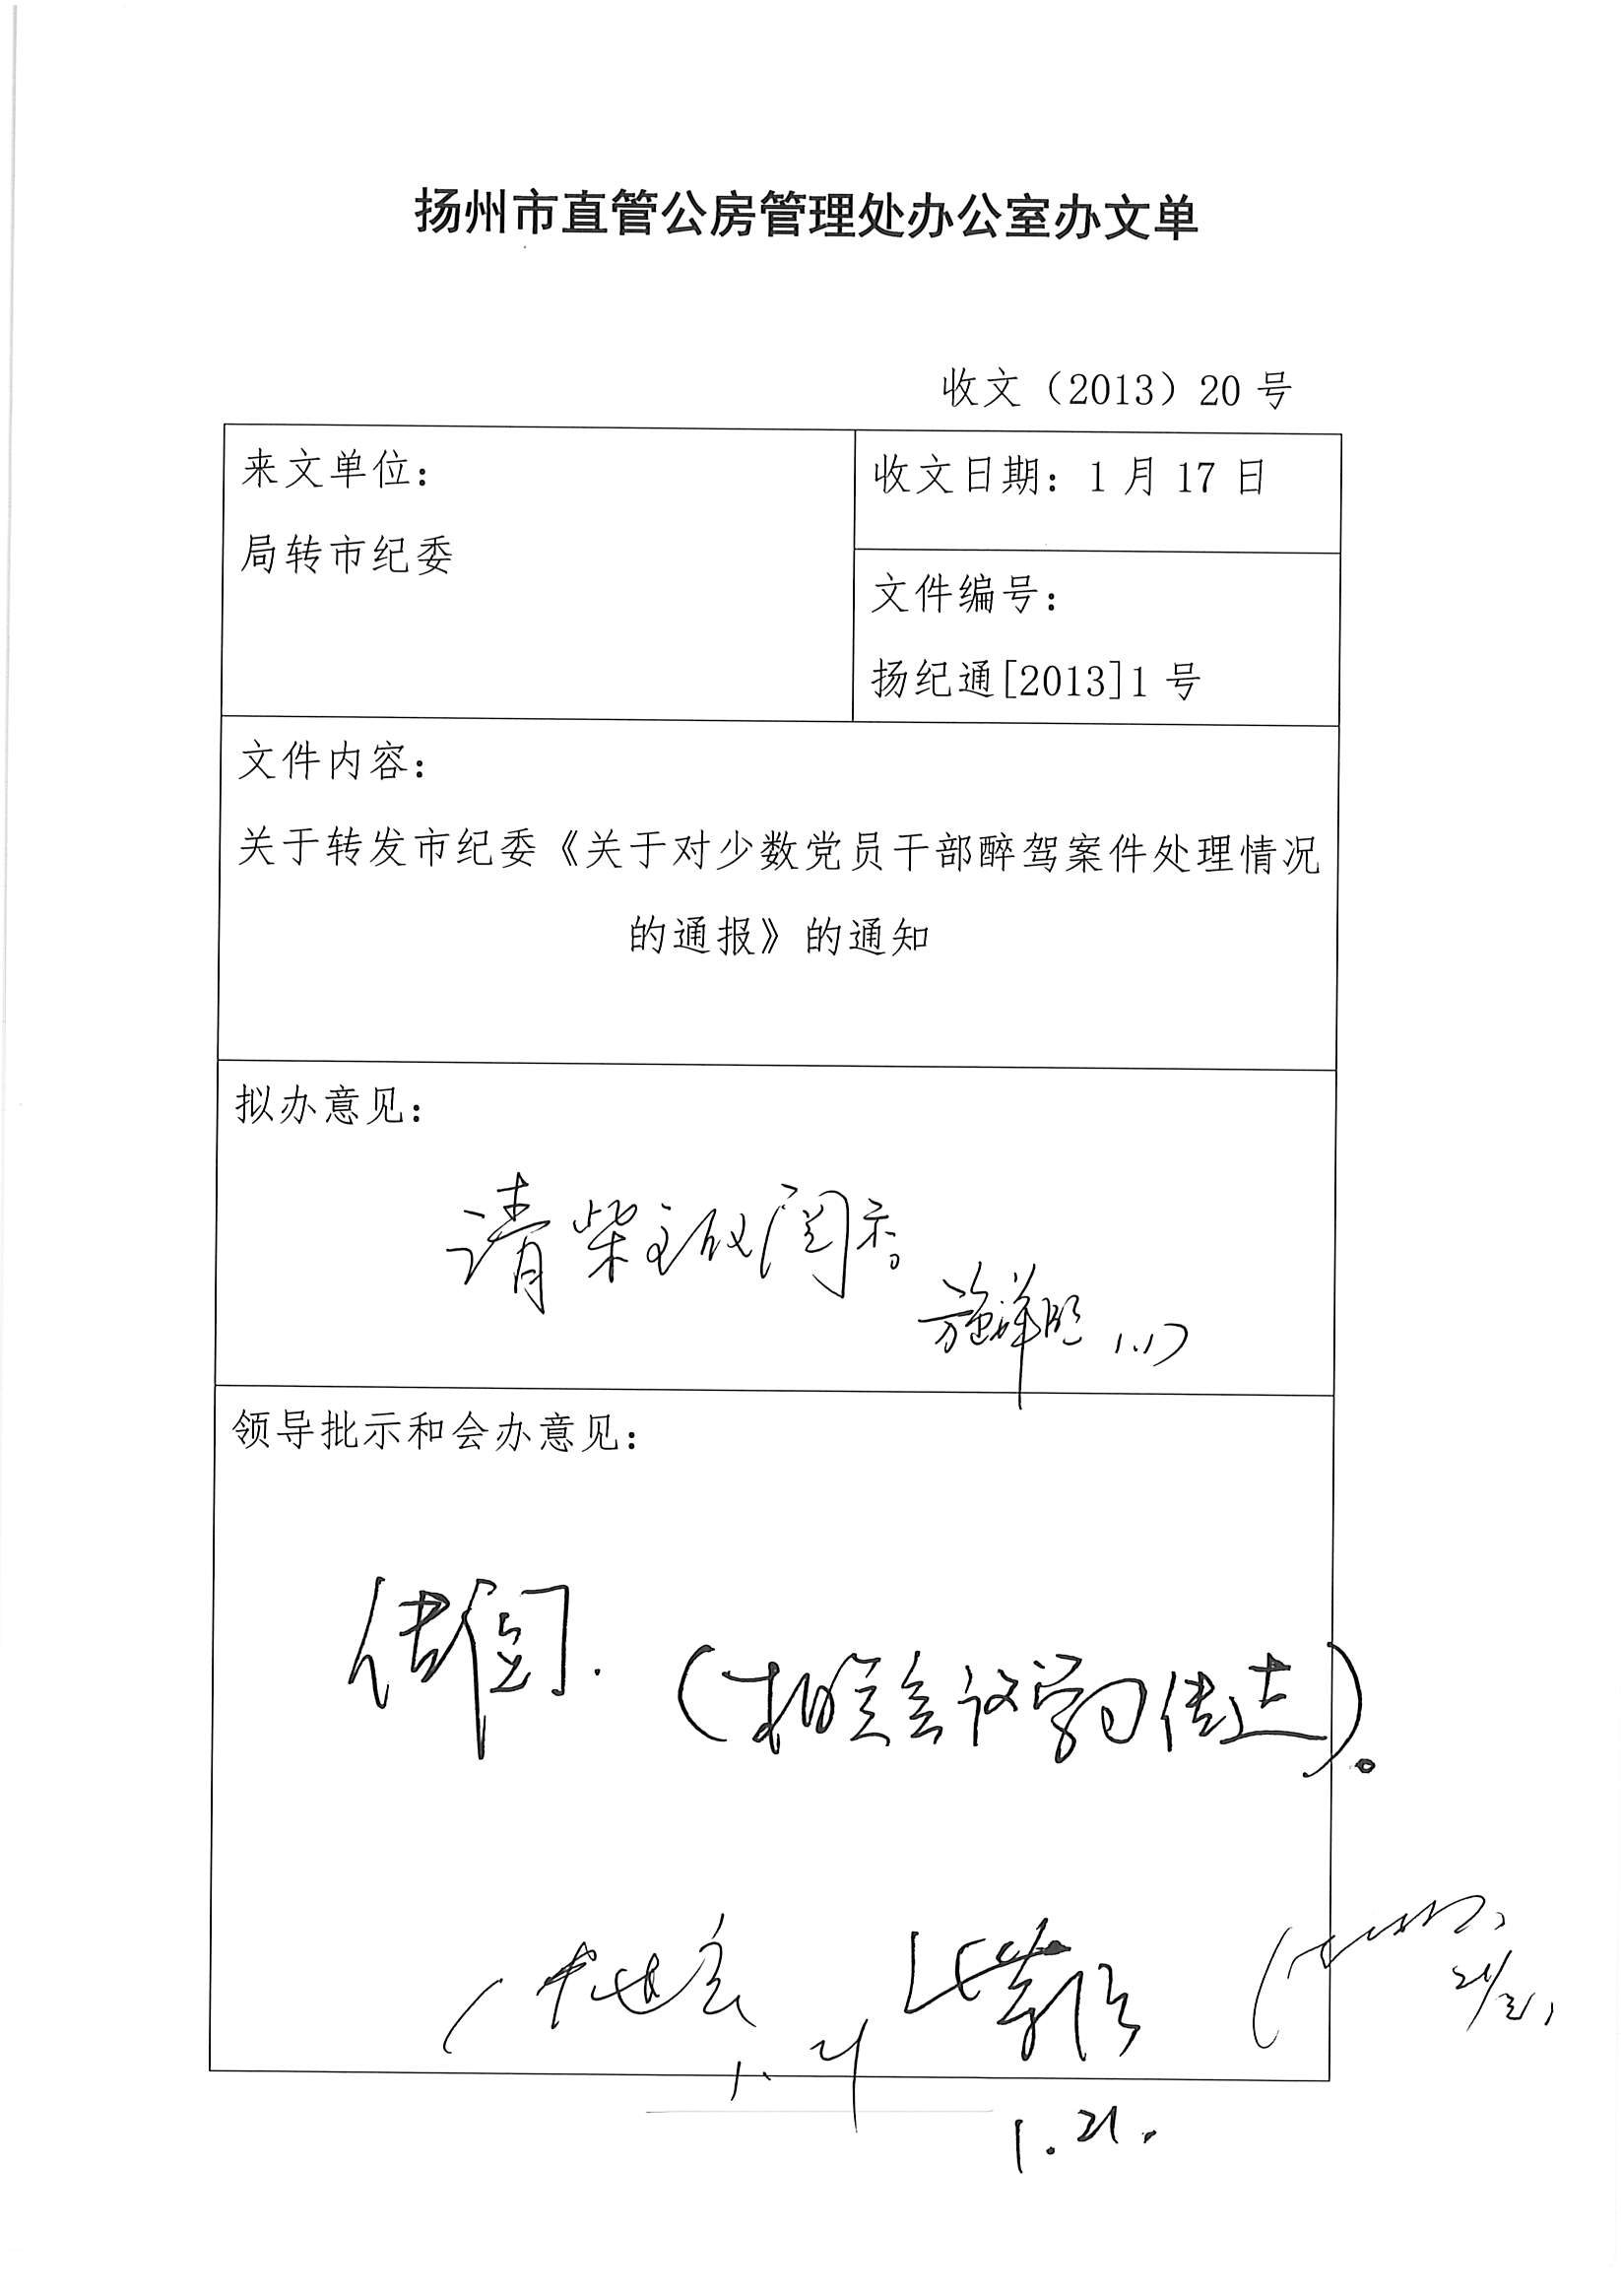 扬州市直管公房管理处办公室办文单
收文（2013）20 号
来文单位：
局转市纪委
收文日期：1 月 17 日
文件编号：
扬纪通[2013]1 号
文件内容：
关于转发市纪委《关于对少数党员干部醉驾案件处理情况
的通报》的通知
拟办意见：
请柴主政阅示。
1.17
领导批示和会办意见：
传阅.
会议学习传达）。
1.21
1.21.